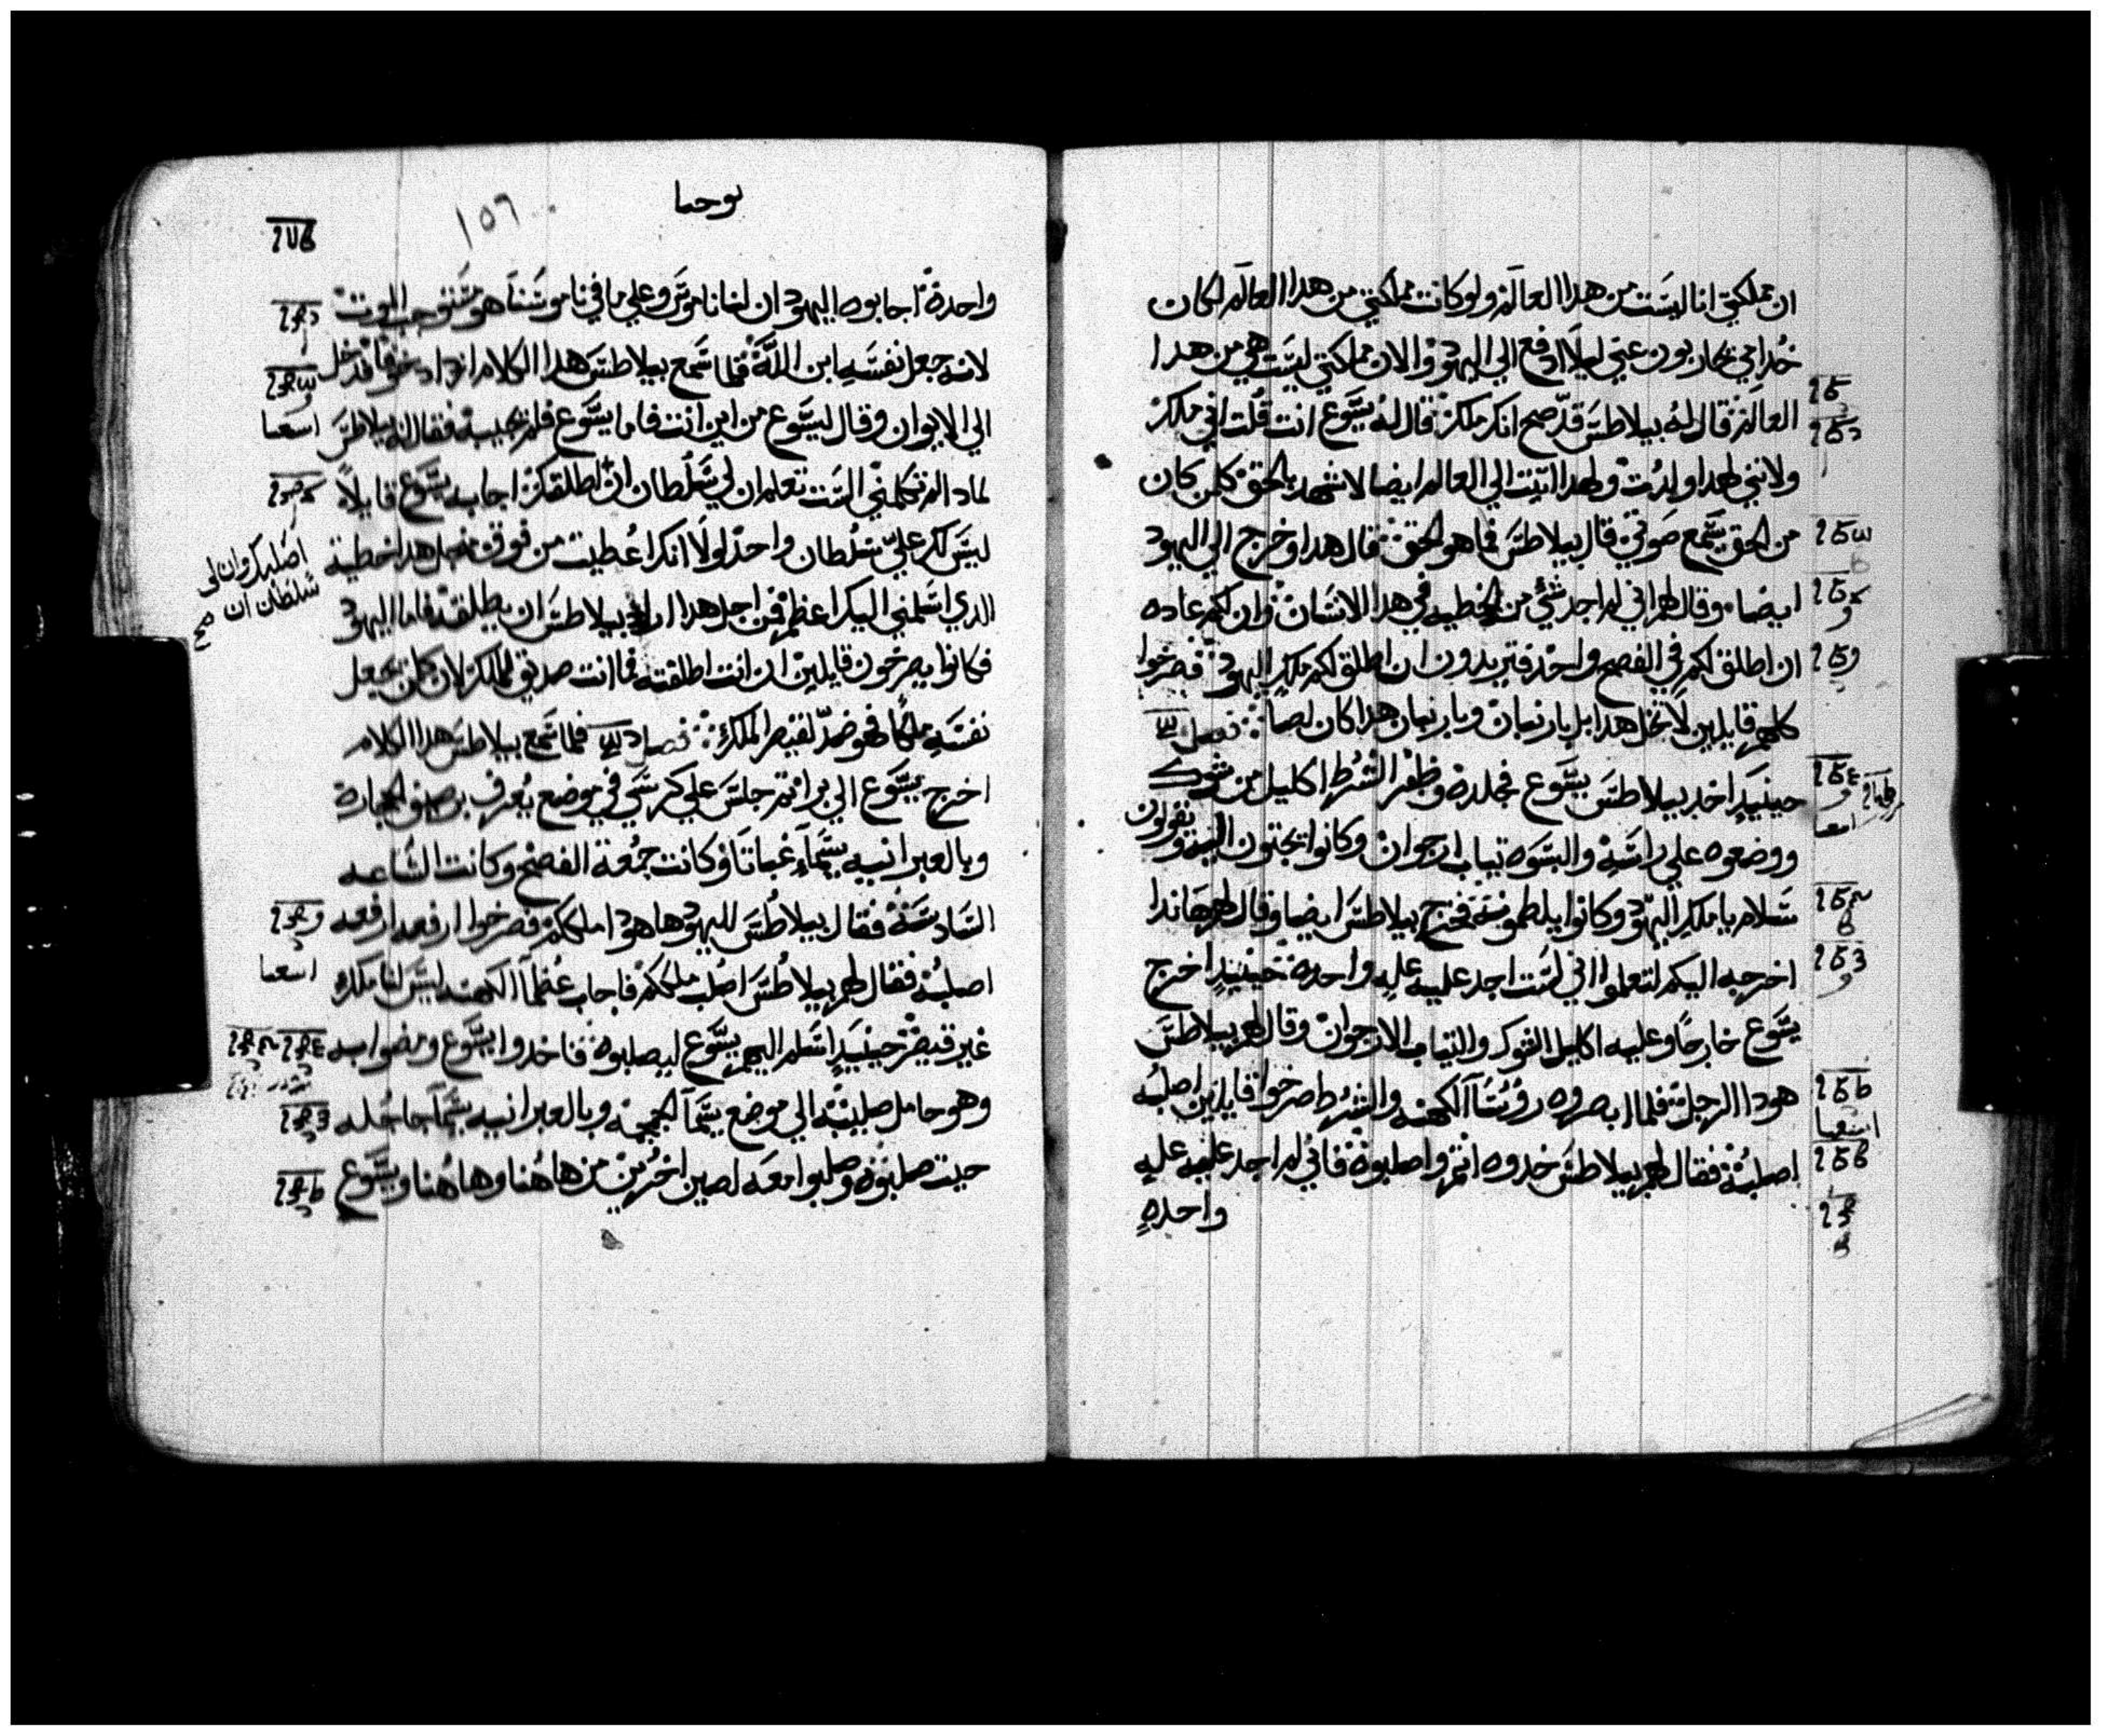 ان مملكتي انا ليست من هدا العالم ولو كانت مملكتي من هدا العالم لكان
خدامي يحاربون عني ليلا ادفع الي اليهود والان مملكتي ليست هي من هدا
العالم فقال له بيلاطس قد صح انك ملك قال له يسوع انت قلت اني ملك
ولانني لهدا ولدت ولهدا اتيت الي العالم ايضا لاشهد بالحق كلمن كان
من الحق يسمع صوتي قال بيلاطس فما هو الحق قال هدا وخرج الي اليهود
ايضا وقال لهم اني لم اجد شئ من الخطيه في هدا الانسان وان لكم عاده
ان اطلق لكم في الفصح واحد فتريدون ان اطلق لكم ملك اليهود فصرخوا
كلهم قايلين لا تخل هدا بل بارنبان وبارنبان هدا كان لصا فصل
حينيد اخد بيلاطس يسوع فجلده وظفر الشرط اكليل من شوك
ووضعوه علي راسه والبسوه تياب ارجوان وكانوا يجتون اليه ويقولون
سلام يا ملك اليهود وكانوا يلطمونه فخرج بيلاطس ايضا وقال لهم هاندا
اخرجه اليكم لتعلموا اني لست اجد عليه عله واحده حينيد اخرج
يسوع خارجا وعليه اكليل الشوك والتياب الارجوان وقال لهم بيلاطس
هودا الرجل فلما ابصروه روسآ الكهنه والشرط صرخوا قايلين اصلبه
اصلبه فقال لهم بيلاطس خدوه انتم واصلبوه فاني لم اجد عليه عله
واحده
يوحنا
١٥٦
واحدة اجابوه اليهود ان لنا ناموس وعلي ما في ناموسنا هو مستوجب الموت
لانه جعل نفسه ابن الله فلما سمع بيلاطس هدا الكلام ازداد خوفا فدخل
الي الايوان وقال ليسوع من اين انت فاما يسوع فلم يجيبه فقال له بيلاطس
لمادا لم تكلمني الست تعلم ان لي سلطان ان اطلقك اجابه يسوع قايلا
اصلبك وان لي
سلطان ان صح
ليس لك علي سلطان واحد لولا انك اعطيت من فوق من اجل هدا خطية
الدي اسلمني اليك اعظم فمن اجل هدا اراد بيلاطس ان يطلقه فاما اليهود
فكانوا يصرخون قايلين ان انت اطلقته فما انت صديق للملك لان كلمن يجعل
نفسه ملكا فهو ضد لقيصر الملك فصل فلما سمع بيلاطس هدا الكلام
اخرج يسوع الي برا تم جلس علي كرسي في موضع يعرف برصيف الحجارة
وبالعبرانيه يسمآ غباتا وكانت جمعة الفصح وكانت الساعه
السادسة فقال بيلاطس لليهود ها هودا ملككم فصرخوا ارفعه ارفعه
اصلبه فقال لهم بيلاطس اصلب ملككم فاجاب عظمآ الكهنه ليس لنا ملك
غير قيصر حينيد اسلم اليهم يسوع ليصلبوه فاخدوا يسوع ومضوا به
وهو حامل صليبه الي موضع يسمآ الجمجمة وبالعبرانيه يسمآ جاجله
حيت صلبوه وصلبوا معه لصين اخرين من هاهنا وهاهنا ويسوع